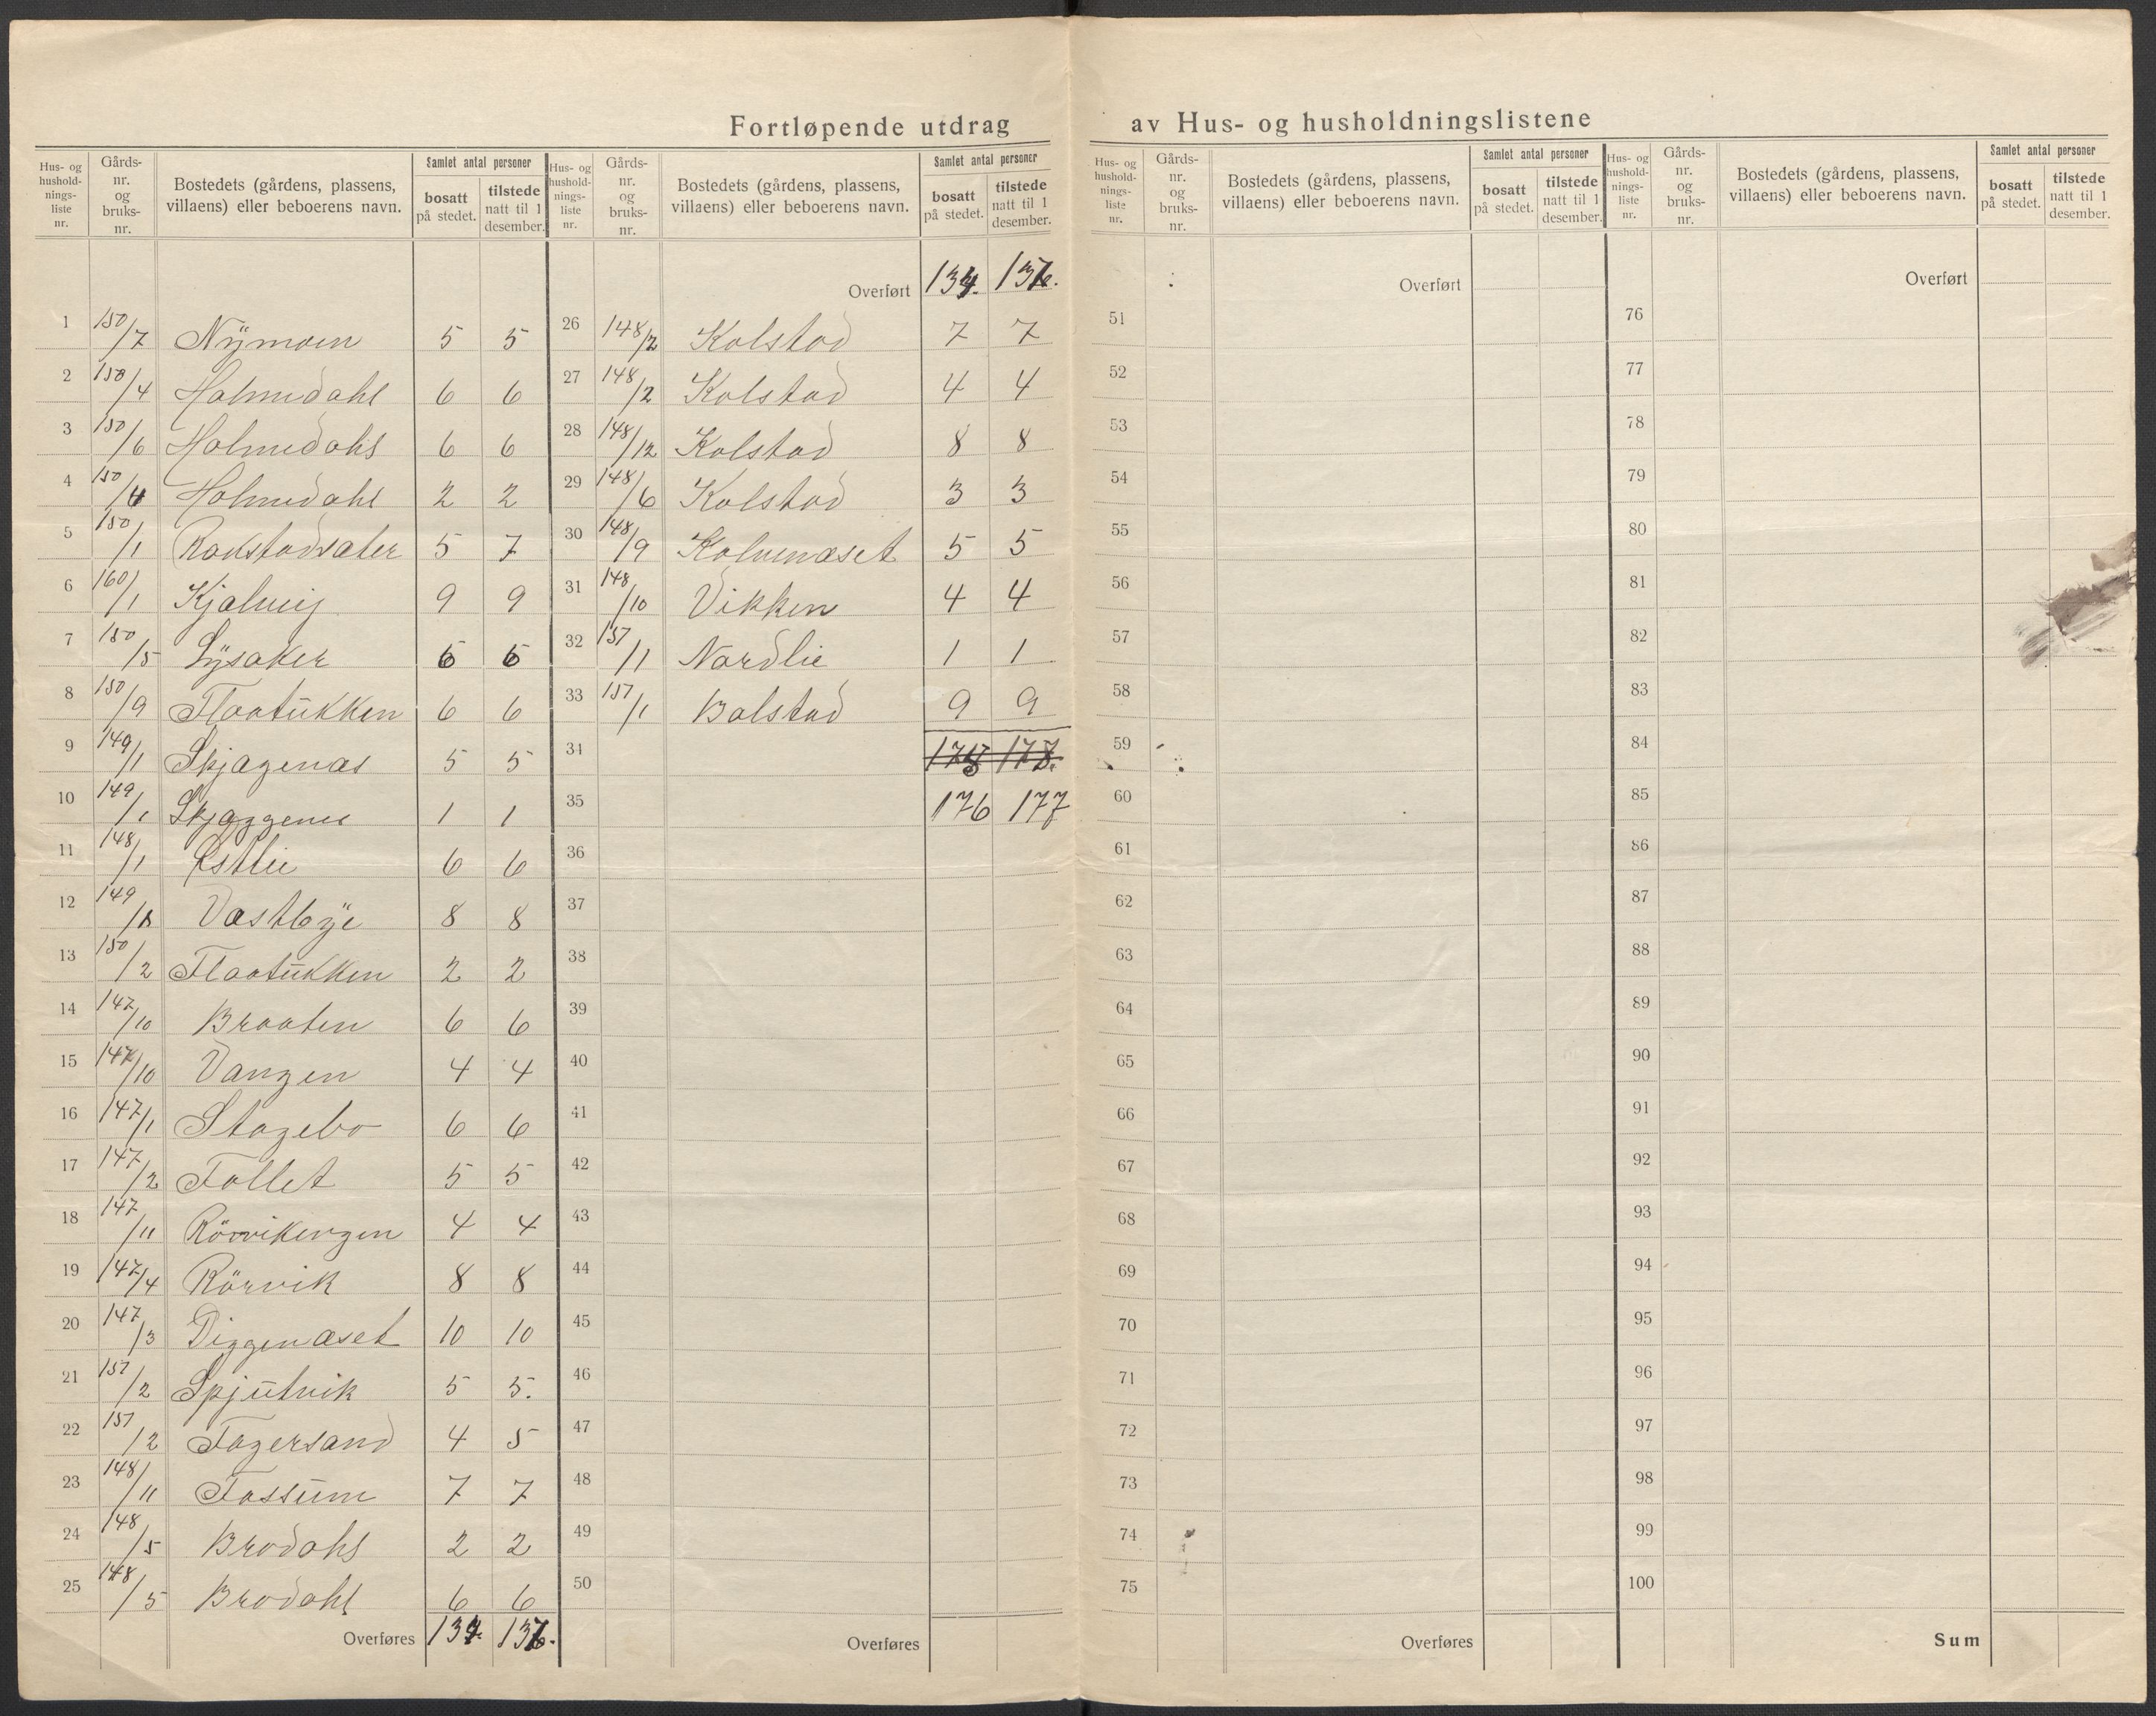 Fortløpende utdrag av Hus- og husholdningslistene
Hus- og husholdnings-liste nr. Gårds-nr. og bruks-nr. Bostedets (gårdens, plassens, villaens) eller beboerens navn. Samlet antal personer bosatt på stedet. tilstede natt til 1 desember.
Hus- og husholdnings-liste nr. Gårds-nr. og bruks-nr. Bostedets (gårdens, plassens, villaens) eller beboerens navn. Samlet antal personer bosatt på stedet. tilstede natt til 1 desember.
Hus- og husholdnings-liste nr. Gårds-nr. og bruks-nr. Bostedets (gårdens, plassens, villaens) eller beboerens navn. Samlet antal personer bosatt på stedet. tilstede natt til 1 desember.
Hus- og husholdnings-liste nr. Gårds-nr. og bruks-nr. Bostedets (gårdens, plassens, villaens) eller beboerens navn. Samlet antal personer bosatt på stedet. tilstede natt til 1 desember.
1 150/7 Nÿmoen 5 5
2 150/4 Holmedahl 6 6
3 150/6 Holmedahl 6 6
4 150/4 Holmedahl 2 2
5 150/1 Rakstadsæter 5 7
6 160/1 Kjølvig 9 9
7 150/5 Lÿsaker 6 6
8 150/9 Flaatükken 6 6
9 149/1 Skjægenæs 5 5
10 149/1 Skjæggenes 1 1
11 148/1 Østlie 6 6
12 149/1 Vestbÿe 8 8
13 150/2 Flaatükken 2 2
14 147/10 Braaten 6 6
15 147/10 Vangen 4 4
16 147/1 Stagebo 6 6
17 147/2 Follet 5 5
18 147/11 Rörvikengen 4 4
19 147/4 Rörvik 8 8
20 147/3 Diggenæset 10 10
21 157/2 Spjütvik 5 5.
22 157/2 Fagersand 4 5
23 148/11 Fossüm 7 7
24 148/5 Brodahl 2 2
25 148/5 Brodahl 6 6
Overføres 134 137.
Overført 134. 137.
26 148/2 Kolstad 7 7
27 148/2 Kolstad 4 4
28 148/12 Kolstad 8 8
29 148/6 Kolstad 3 3
30 148/9 Kalvenæset 5 5
31 148/10 Vikken 4 4
32 157/1 Nordlie 1 1
33 157/1 Bolstad 9 9
34 178.
35 176 177
36
37
38
39
40
41
42
43
44
45
46
47
48
49
50
Overføres
Overført
51
52
53
54
55
56
57
58
59
60
61
62
63
64
65
66
67
68
69
70
71
72
73
74
75
Overføres
Overført
76
77
78
79
80
81
82
83
84
85
86
87
88
89
90
91
92
93
94
95
96
97
98
99
100
Sum